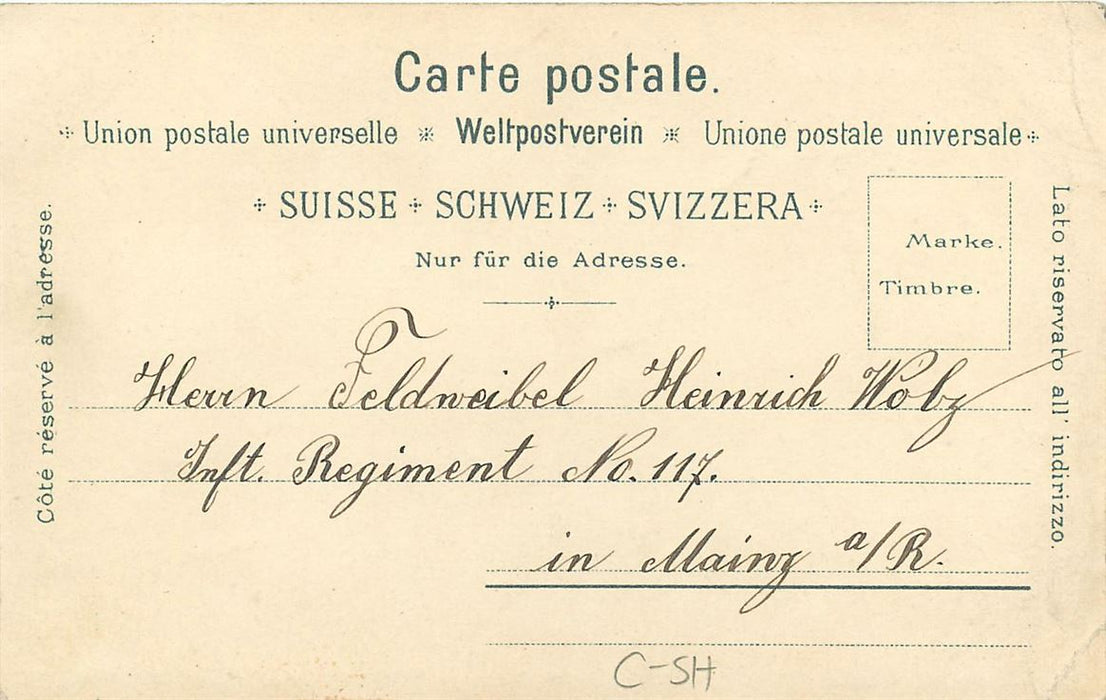 Carte postale.
Union postale universelle Weltpostverein Unione postale universale
SUISSE SCHWEIZ SVIZZERA
Nur für die Adresse.
Marke.
Timbre.
Côté réservé à l'adresse.
Lato riservato all' indirizzo.
Herrn Feldweibel Heinrich Wolz
Inft. Regiment No. 117.
in Mainz a/R.
C-SH